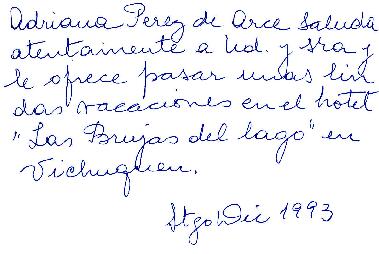 Adriana Perez de Arce saluda
atentamente a Ud. y sra y
le ofrece pasar unas lin
das vacaciones en el hotel
"Las Brujas del lago" en
Vichuquen.
Stgo Dic 1993